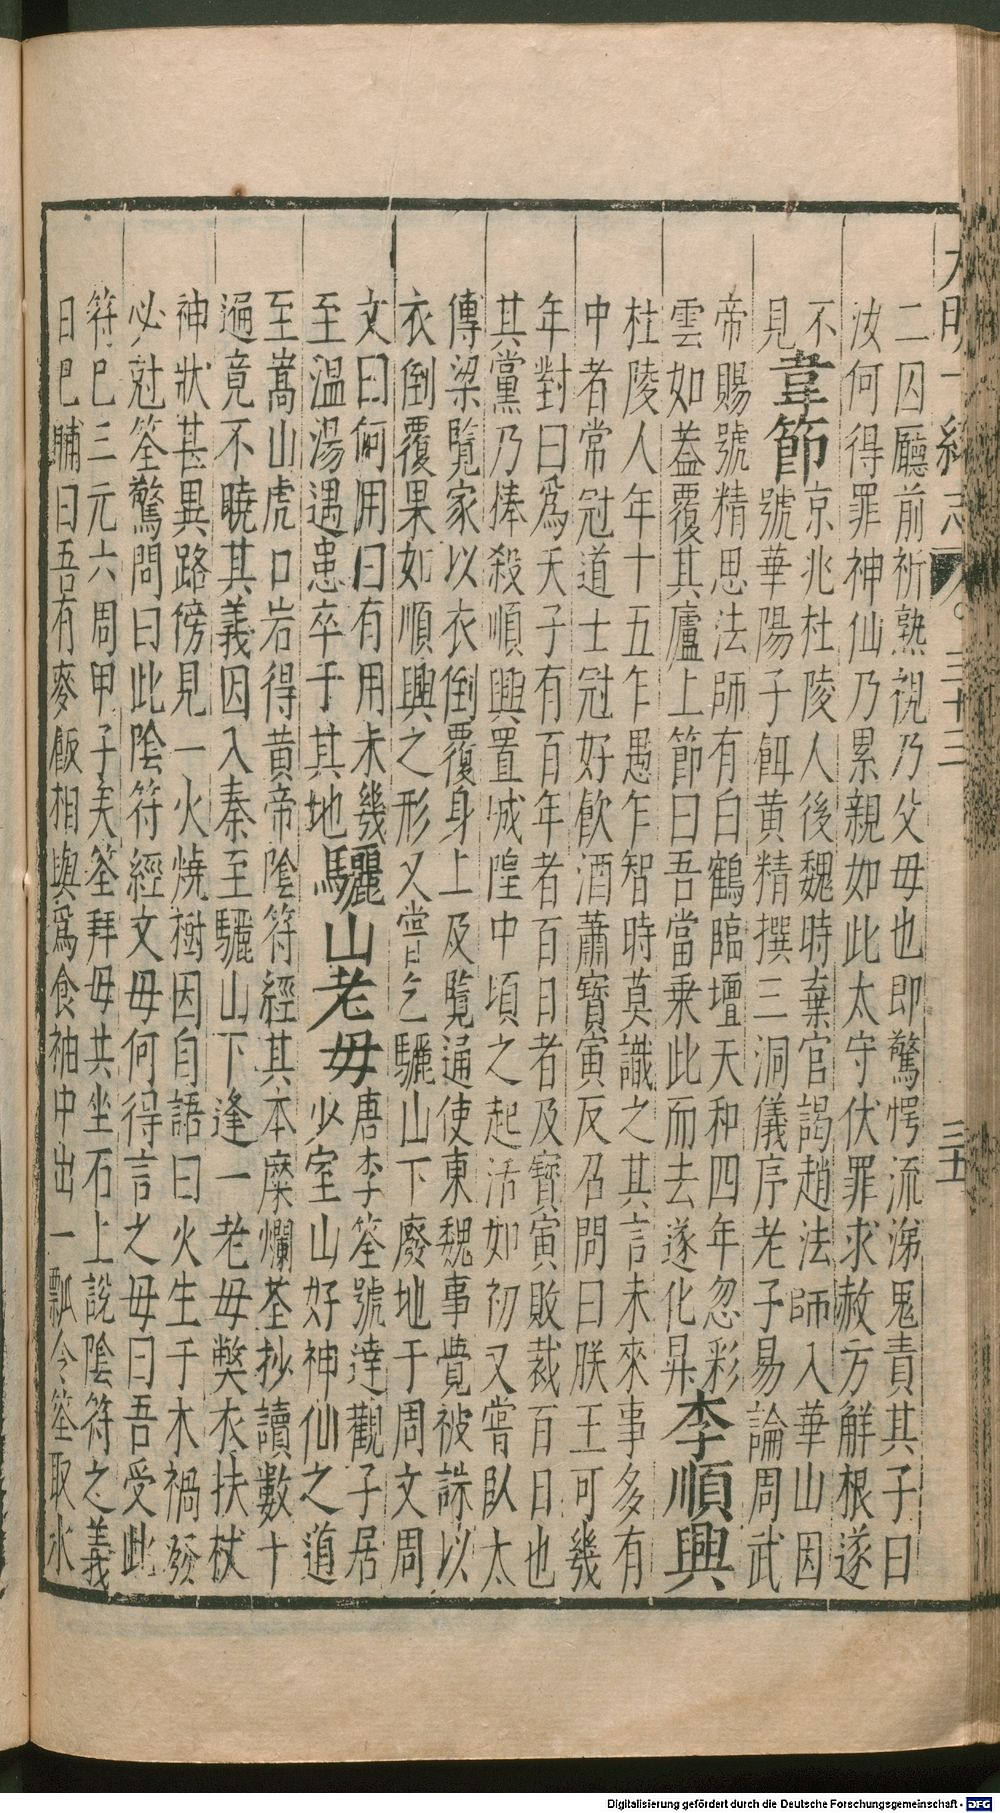 大明一統志 卷三十三 三十五
二囚廳前祈熟視乃父母也即驚愕流涕鬼責其子曰
汝何得罪神仙乃累親如此太守伏罪求赦方解根遂
不
見韋節京兆杜陵人後魏時棄官謁趙法師入華山因號華陽子餌黄精撰三洞儀序老子易論周武
帝賜號精思法師有白鶴臨壇天和四年忽彩
雲如蓋覆其廬上節曰吾當乗此而去遂化昇李順興
杜陵人年十五乍愚乍智時莫識之其言未來事多有
中者常冠道士冠好飲酒蕭寳寅反召問曰朕王可幾
年對曰爲天子有百年者百日者及寳寅敗裁百日也
其黨乃捧殺順興置城隍中頃之起活如初又嘗臥太
傅梁覽家以衣倒覆身上及覽通使東魏事覺被誅以
衣倒覆果如順興之形又嘗乞驪山下廢地于周文周
文曰何用曰有用未幾
至温湯遇患卒于其地驪山老毋唐李筌號達觀子居少室山好神仙之道
至嵩山虎口岩得黄帝陰符經其本糜爛荃抄讀數十
遍竟不曉其義因入秦至驪山下逢一老毋獘衣扶杖
神狀甚異路傍見一火燒樹因自語曰火生于木禍發
必尅筌驚問曰此陰符經文毋何得言之毋曰吾受此
符巳三元六周甲子矣筌拜毋共坐石上說陰符之義
日巳晡曰吾有麥飯相與爲食袖中出一瓢令筌取水